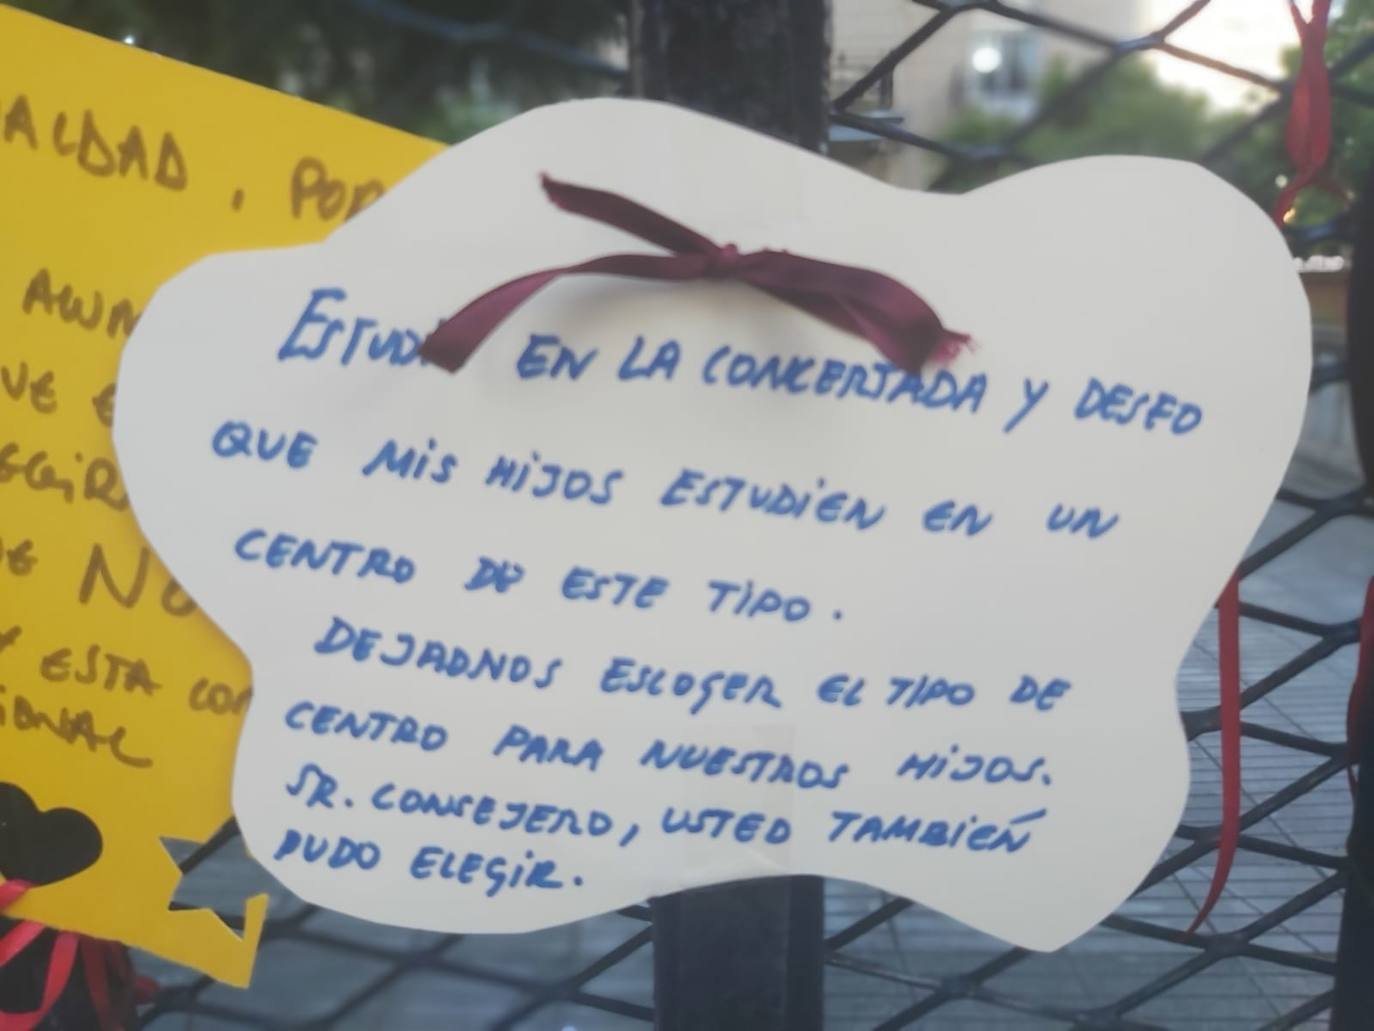 ALDAD, POR
AUN
UE E
EGIR
DE NO
Y ESTA CON
SIONAL
ESTUDI EN LA CONCERTADA Y DESEO
QUE MIS HIJOS ESTUDIEN EN UN
CENTRO DE ESTE TIPO.
DEJADNOS ESCOGER EL TIPO DE
CENTRO PARA NUESTROS HIJOS.
SR. CONSEJERO, USTED TAMBIÉN
PUDO ELEGIR.